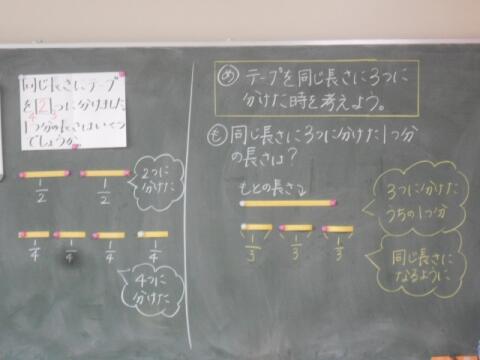 同じ長さにテープ
を2つに分けました
4 3
1つ分の長さはいくつ
でしょうか。
1/2
1/2
2つに
分けた
1/4
1/4
1/4
1/4
4つに
分けた
め テープを同じ長さに3つに
分けた時を考えよう。
も 同じ長さに3つに分けた1つ分
の長さは?
もとの長さ
1/3
1/3
1/3
3つに分けた
うちの1つ分
同じ長さに
なるように